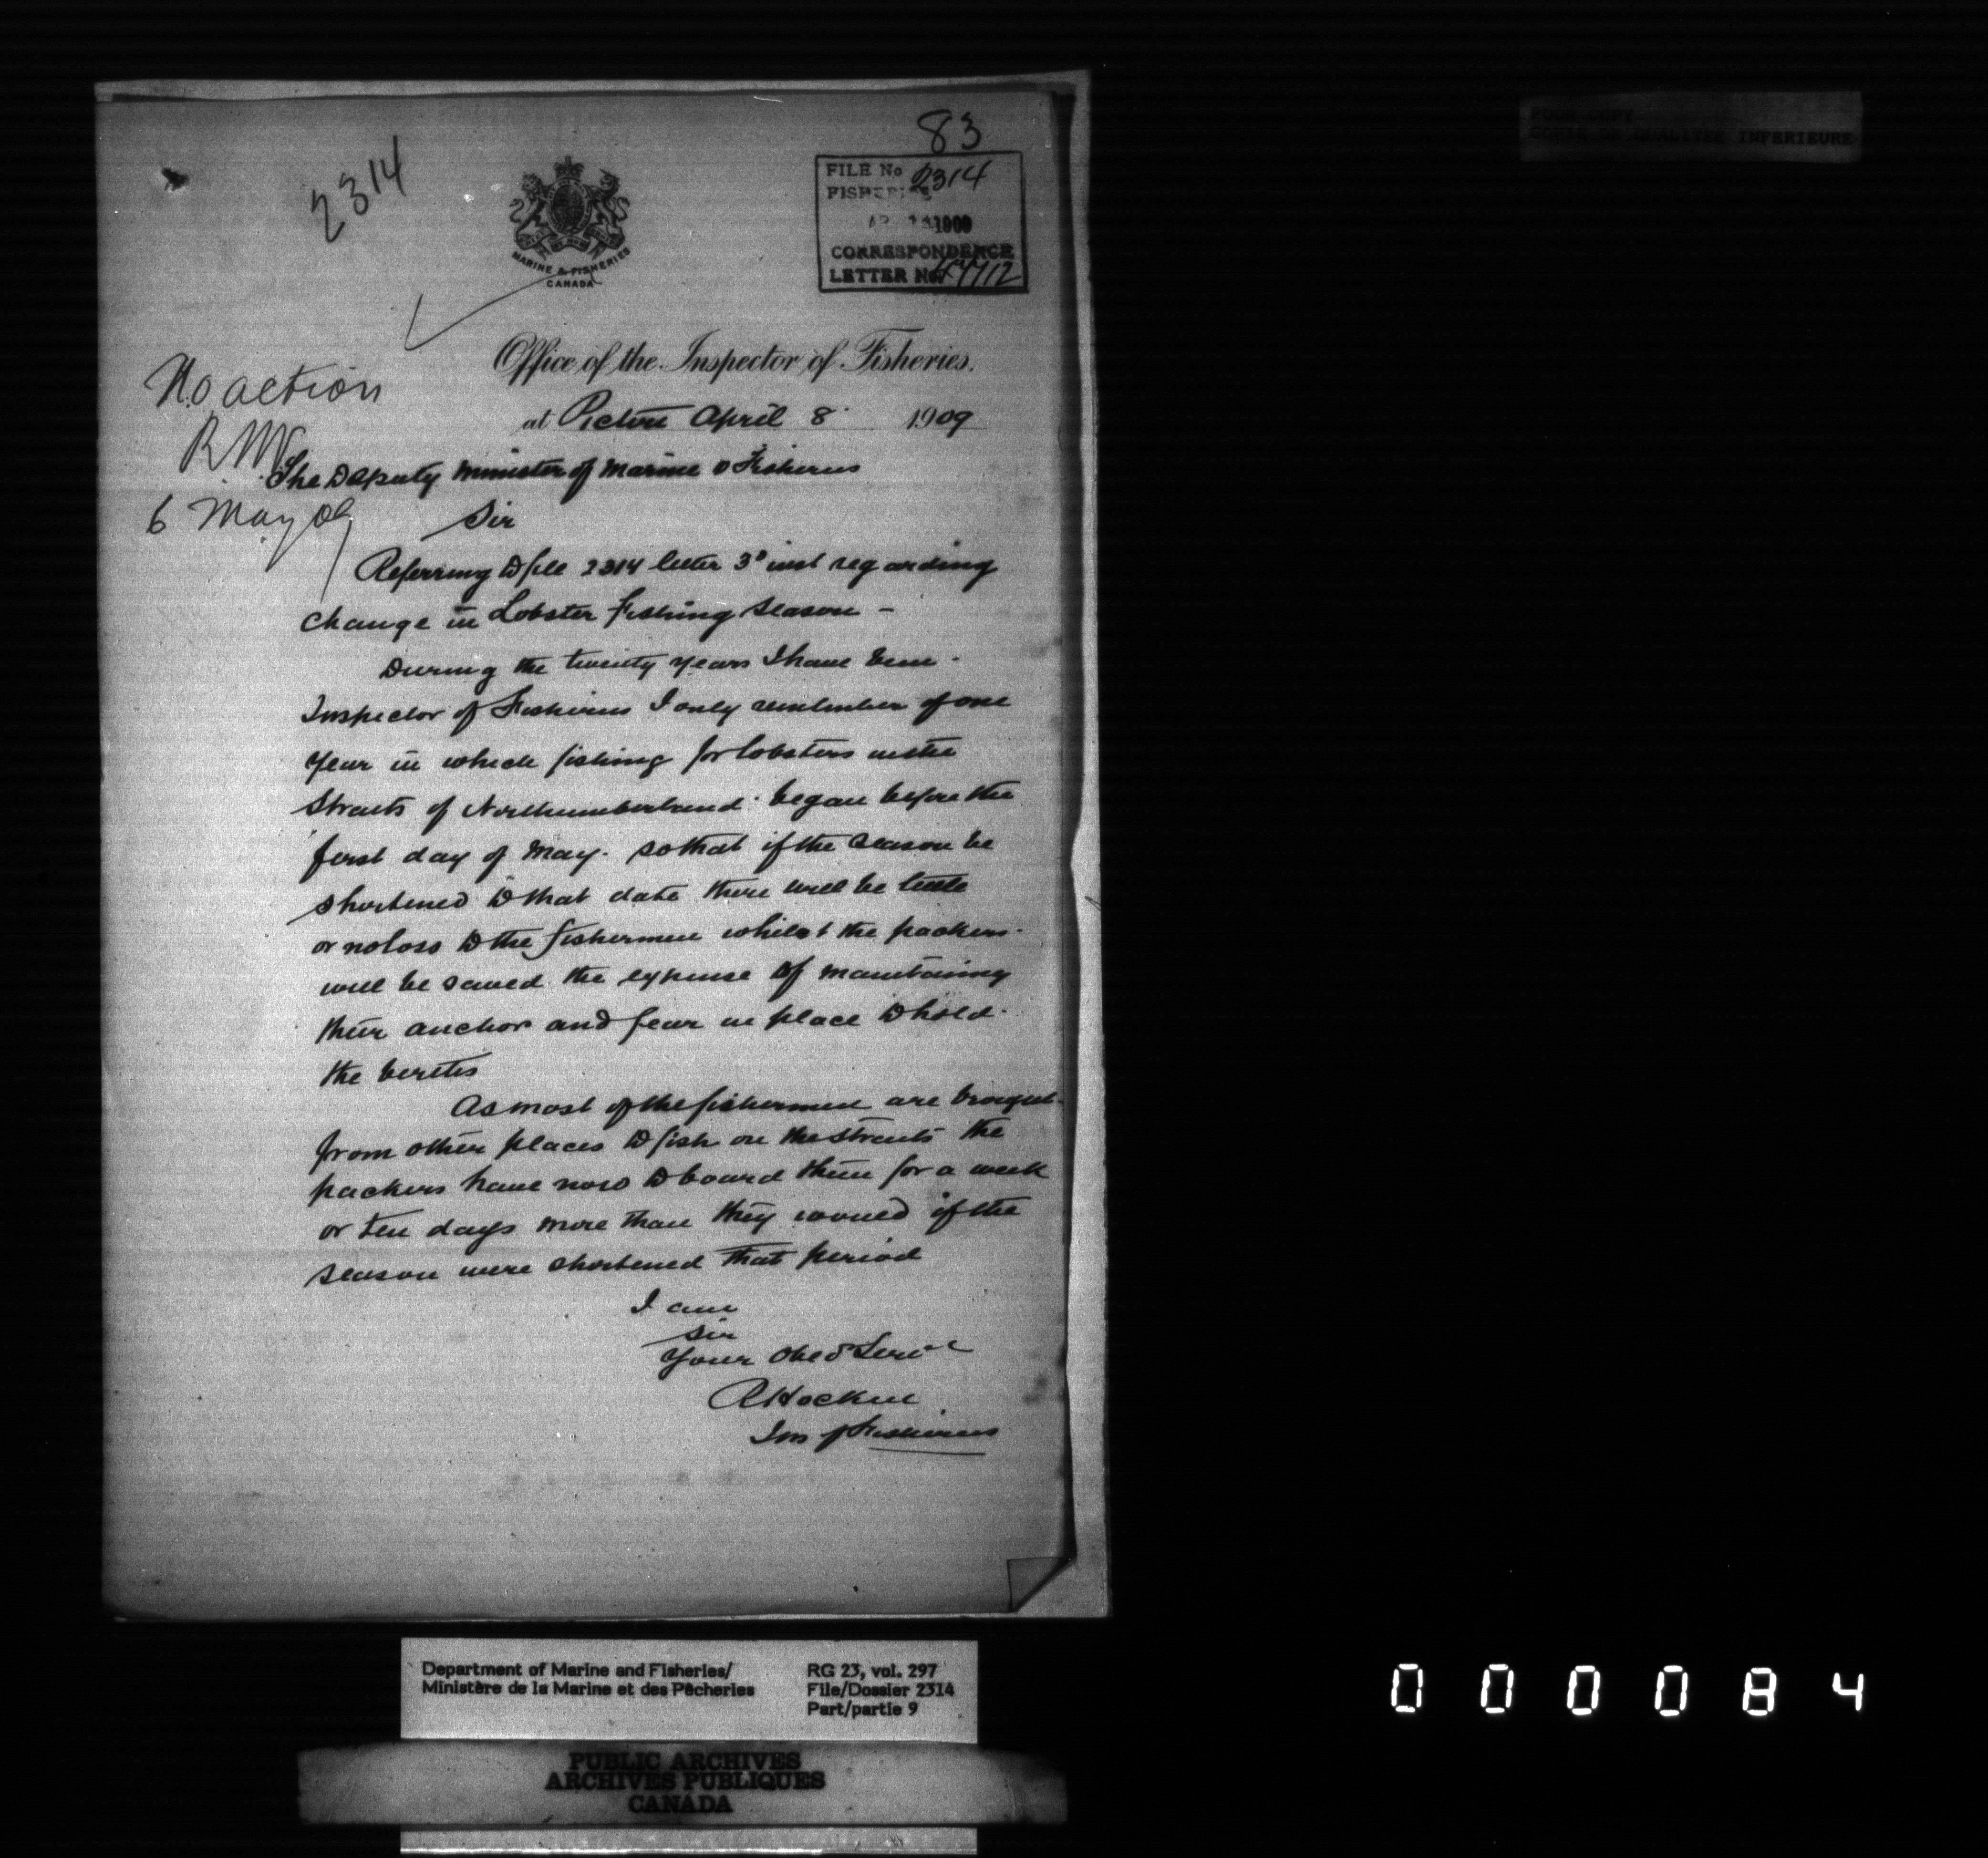 POOR COPY
COPIE DE QUALITEE INFERIEURE
83
2314
FILE No 2314
FISHERIES
1909
CORRESPONDENCE
LETTER No.
MARINE & FISHERIES
CANADA
Office of the Inspector of Fisheries.
at Pictou April 8 1909
No action
RM
6 May 09
The Deputy Minister of Marine & Fisheries
Sir
Referring to file 2314 letter 3d inst regarding
change in Lobster fishing season -
During the twenty years I have been
Inspector of Fisheries I only remember of one
year in which fishing for lobsters in the
Straits of Northumberland began before the
first day of May. so that if the season be
shortened to that date there will be little
or no loss to the fishermen whilst the packers
will be saved the expense of maintaining
their anchor and gear in place to hold
the berths
As most of the fishermen are brought
from other places to fish on the Straits the
packers have now to board them for a week
or ten days more than they would if the
season were shortened that period
I am
Sir
Your Obed Servt
R Hockin
Ins of Fisheries
Department of Marine and Fisheries/
Ministère de la Marine et des Pêcheries
RG 23, vol. 297
File/Dossier 2314
Part/partie 9
PUBLIC ARCHIVES
ARCHIVES PUBLIQUES
CANADA
000084